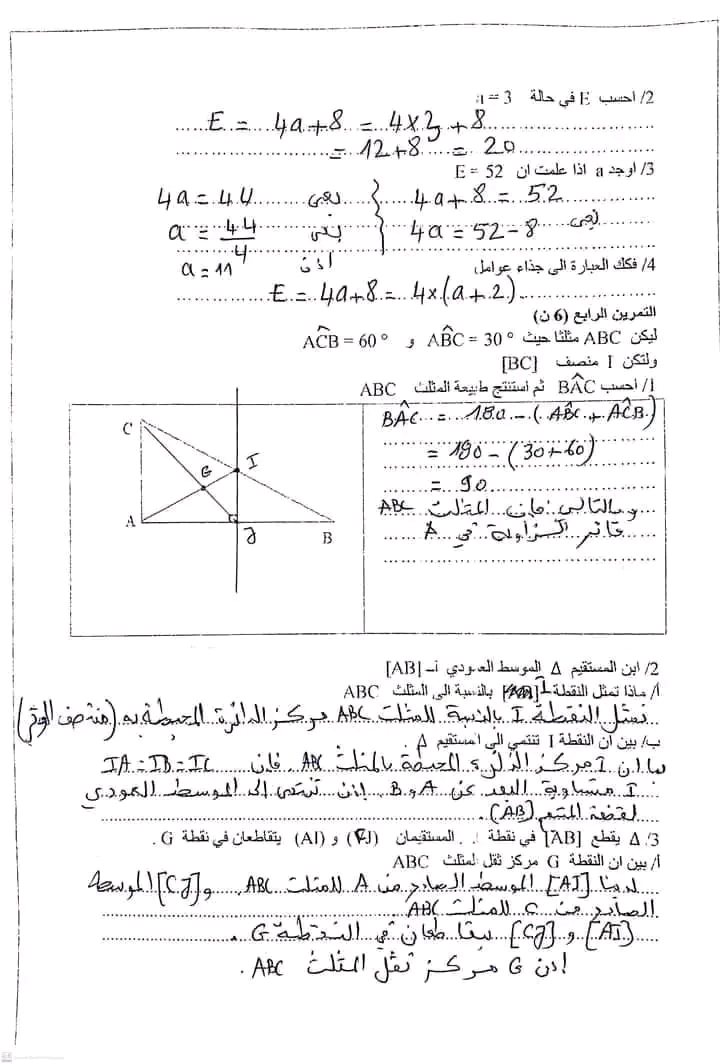 2/ احسب E في حالة a = 3
E = 4a+8 = 4×3 + 8
= 12+8 = 20
3/ اوجد a اذا علمت ان E = 52
4a + 8 = 52 يعني 4a = 44
يعني 4a = 52 - 8 يعني a = 44/4
اذن a = 11
4/ فكك العبارة الى جذاء عوامل
E = 4a+8 = 4×(a+2)
التمرين الرابع (6 ن)
ليكن ABC مثلثا حيث ABC = 30° و ACB = 60°
ولتكن I منصف [BC]
1/ احسب BAC ثم استنتج طبيعة المثلث ABC
BAC = 180 - (ABC + ACB)
= 180 - (30+60)
= 90
و بالتالي فان المثلث ABC
قائم الزاوية في A
C
G
I
A
J
B
2/ ابن المستقيم Δ الموسط العمودي لـ [AB]
أ/ ماذا تمثل النقطة I بالنسبة الى المثلث ABC
تمثل النقطة I بالنسبة للمثلث ABC مركز الدائرة المحيطة به (منتصف الوتر)
ب/ بين ان النقطة I تنتمي الى المستقيم Δ
بما ان I مركز الدائرة المحيطة بالمثلث ABC فان IA = IB = IC
I متساوية البعد عن A و B إذن تنتمي إلى الموسط العمودي
لقطعة المستقيم [AB].
3/ Δ يقطع [AB] في نقطة المستقيمان (CJ) و (AI) يتقاطعان في نقطة G.
أ/ بين ان النقطة G مركز ثقل لمثلث ABC
لدينا [AI] الموسط الصادر من A للمثلث ABC و [CJ] الموسط
الصادر من C للمثلث ABC
[AI] و [CJ] يتقاطعان في النقطة G.
إذن G مركز ثقل المثلث ABC.